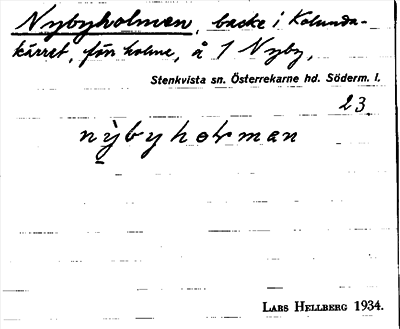 Nybyholmen, backe i Kolunda-
kärret, fån holme, å 1 Nyby,
Stenkvista sn. Österrekarne hd. Söderm. l.
23.
nỳbyholman
LARS HELLBERG 1934.